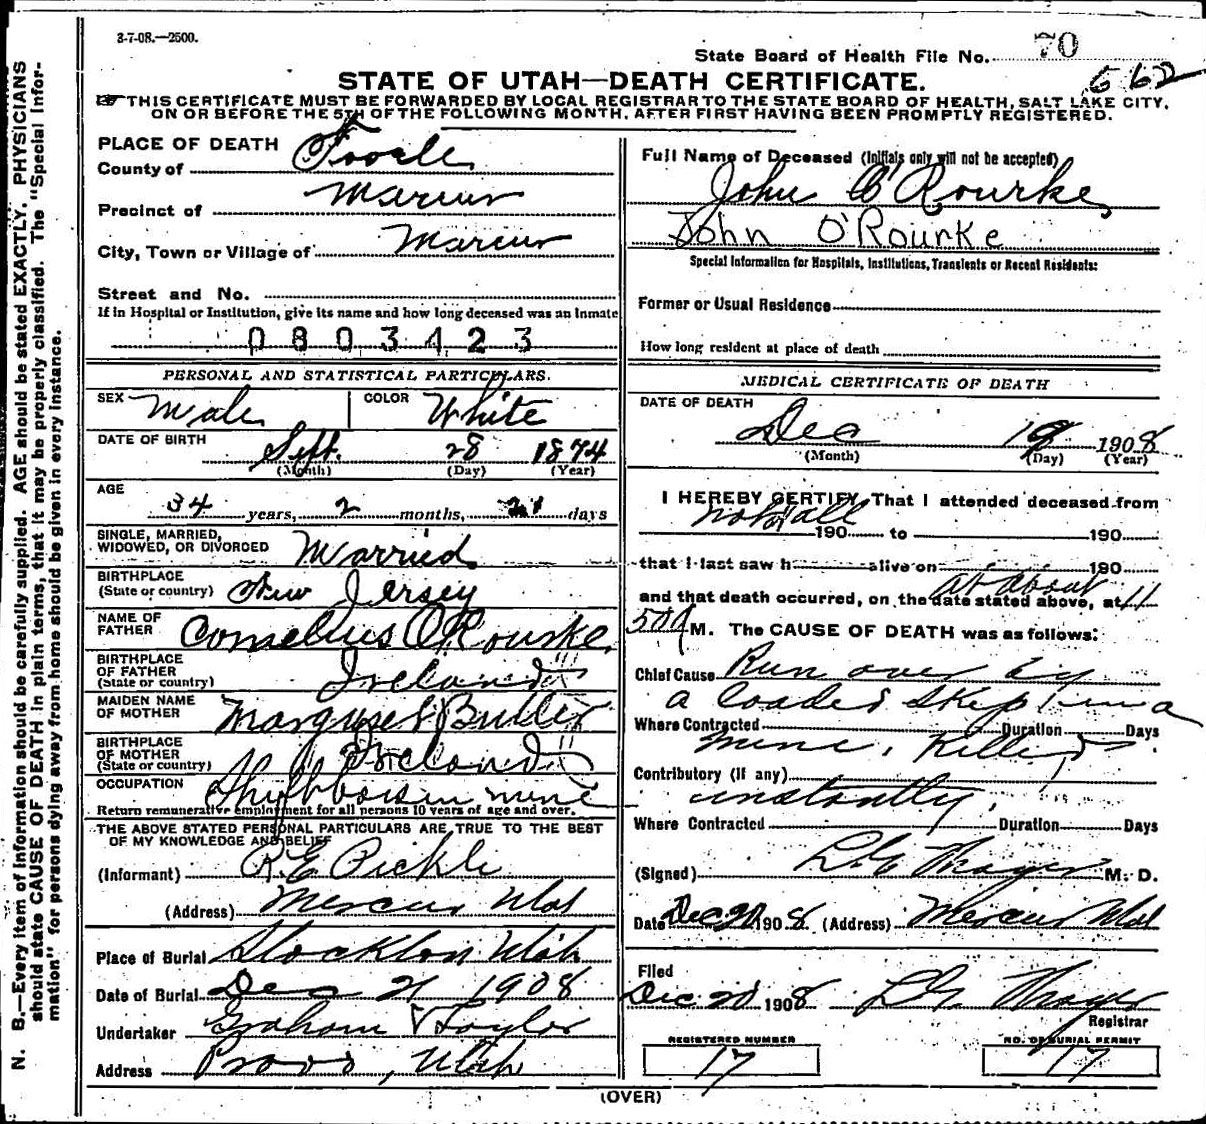 3-7-08.—2500.
State Board of Health File No. 70
662
STATE OF UTAH—DEATH CERTIFICATE.
THIS CERTIFICATE MUST BE FORWARDED BY LOCAL REGISTRAR TO THE STATE BOARD OF HEALTH, SALT LAKE CITY,
ON OR BEFORE THE 5TH OF THE FOLLOWING MONTH, AFTER FIRST HAVING BEEN PROMPTLY REGISTERED.
N. B.—Every item of information should be carefully supplied. AGE should be stated EXACTLY. PHYSICIANS
should state CAUSE OF DEATH in plain terms, that it may be properly classified. The "Special Infor-
mation" for persons dying away from home should be given in every instance.
PLACE OF DEATH
County of Tooele
Precinct of Mercur
City, Town or Village of Mercur
Street and No.
If in Hospital or Institution, give its name and how long deceased was an Inmate
0803423
PERSONAL AND STATISTICAL PARTICULARS.
SEX Male COLOR White
DATE OF BIRTH Sept. 28 1874
(Month) (Day) (Year)
AGE
34 years, 2 months, 21 days
SINGLE, MARRIED,
WIDOWED, OR DIVORCED Married
BIRTHPLACE
(State or country) New Jersey
NAME OF
FATHER Cornelius O'Rourke
BIRTHPLACE
OF FATHER
(State or country) Ireland
MAIDEN NAME
OF MOTHER Margaret Butler
BIRTHPLACE
OF MOTHER
(State or country) Ireland
OCCUPATION in mine
Return remunerative employment for all persons 10 years of age and over.
THE ABOVE STATED PERSONAL PARTICULARS ARE TRUE TO THE BEST
OF MY KNOWLEDGE AND BELIEF
(Informant) R. E. Pickle
(Address) Mercur Utah
Place of Burial Stockton Utah
Date of Burial Dec 21 1908
Undertaker Graham & Taylor
Address Provo, Utah
Full Name of Deceased (Initials only will not be accepted)
John O'Rourke
John O'Rourke
Special Information for Hospitals, Institutions, Transients or Recent Residents:
Former or Usual Residence
How long resident at place of death
MEDICAL CERTIFICATE OF DEATH
DATE OF DEATH
Dec 19 1908
(Month) (Day) (Year)
I HEREBY CERTIFY, That I attended deceased from
not at all 190 to 190
that I last saw h alive on 190
and that death occurred, on the date stated above, at at about 11
50 M. The CAUSE OF DEATH was as follows:
Chief Cause Run over by
a loaded skip in a
Where Contracted Duration Days
mine, Killed
Contributory (if any)
instantly.
Where Contracted Duration Days
(Signed) Thayer M. D.
Date Dec 20 1908 (Address) Mercur Utah
Filed
Dec 20 1908 Thayer
Registrar
REGISTERED NUMBER
17
NO. OF BURIAL PERMIT
17
(OVER)